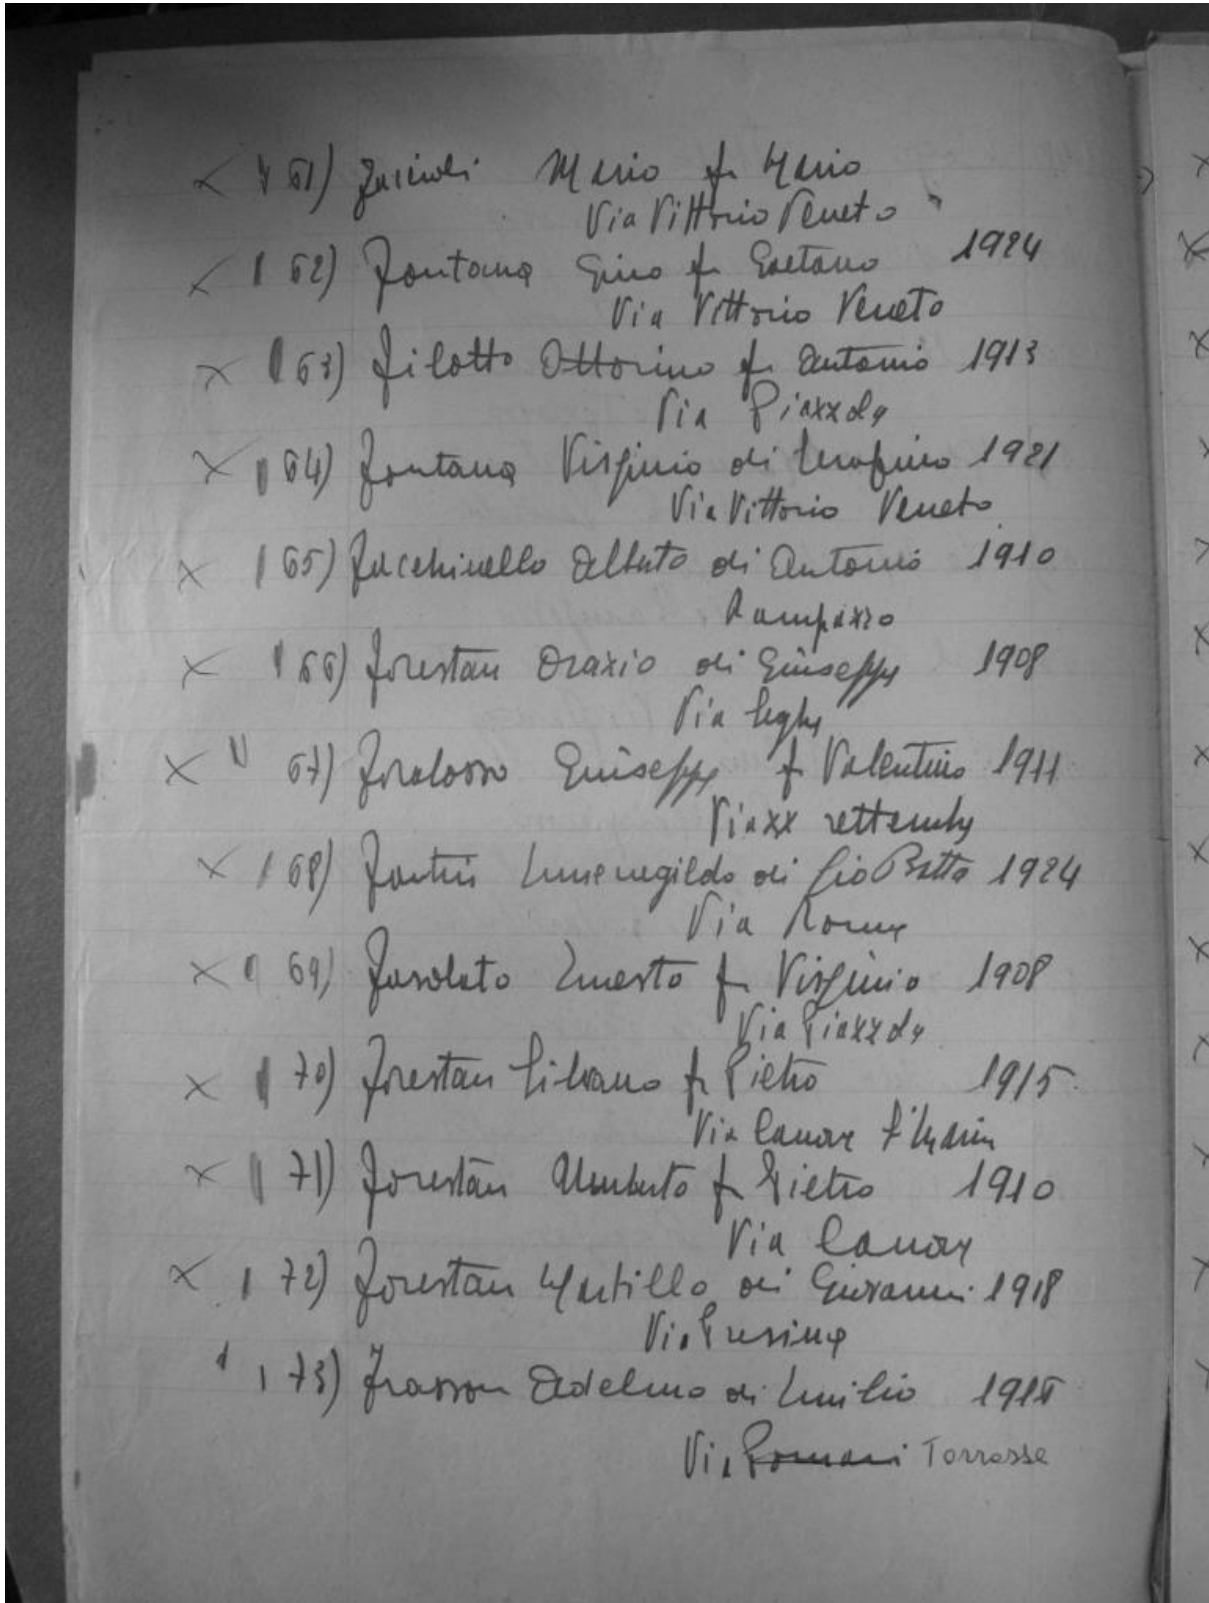 61) Mario f. Mario
Via Vittorio Veneto
62) Fontana Gino f. Gaetano 1924
Via Vittorio Veneto
63) Filotto Ottorino f. Antonio 1913
Via Piazzola
64) Fontana Virginio di Serafino 1921
Via Vittorio Veneto
65) Facchinello Alberto di Antonio 1910
Rampazzo
66) Forestan Orazio di Giuseppe 1908
Via
67) Giuseppe f. Valentino 1911
Via XX settembre
68) Fantin Ermenegildo di Gio Batta 1924
Via Roma
69) Fasolato Ernesto f. Virginio 1908
Via Piazzola
70) Forestan Silvano f. Pietro 1915
Via Canove
71) Forestan Umberto f. Pietro 1910
Via Canove
72) Forestan di Giovanni 1918
Via
73) Frasson Adelmo di Emilio
Via Torrosse